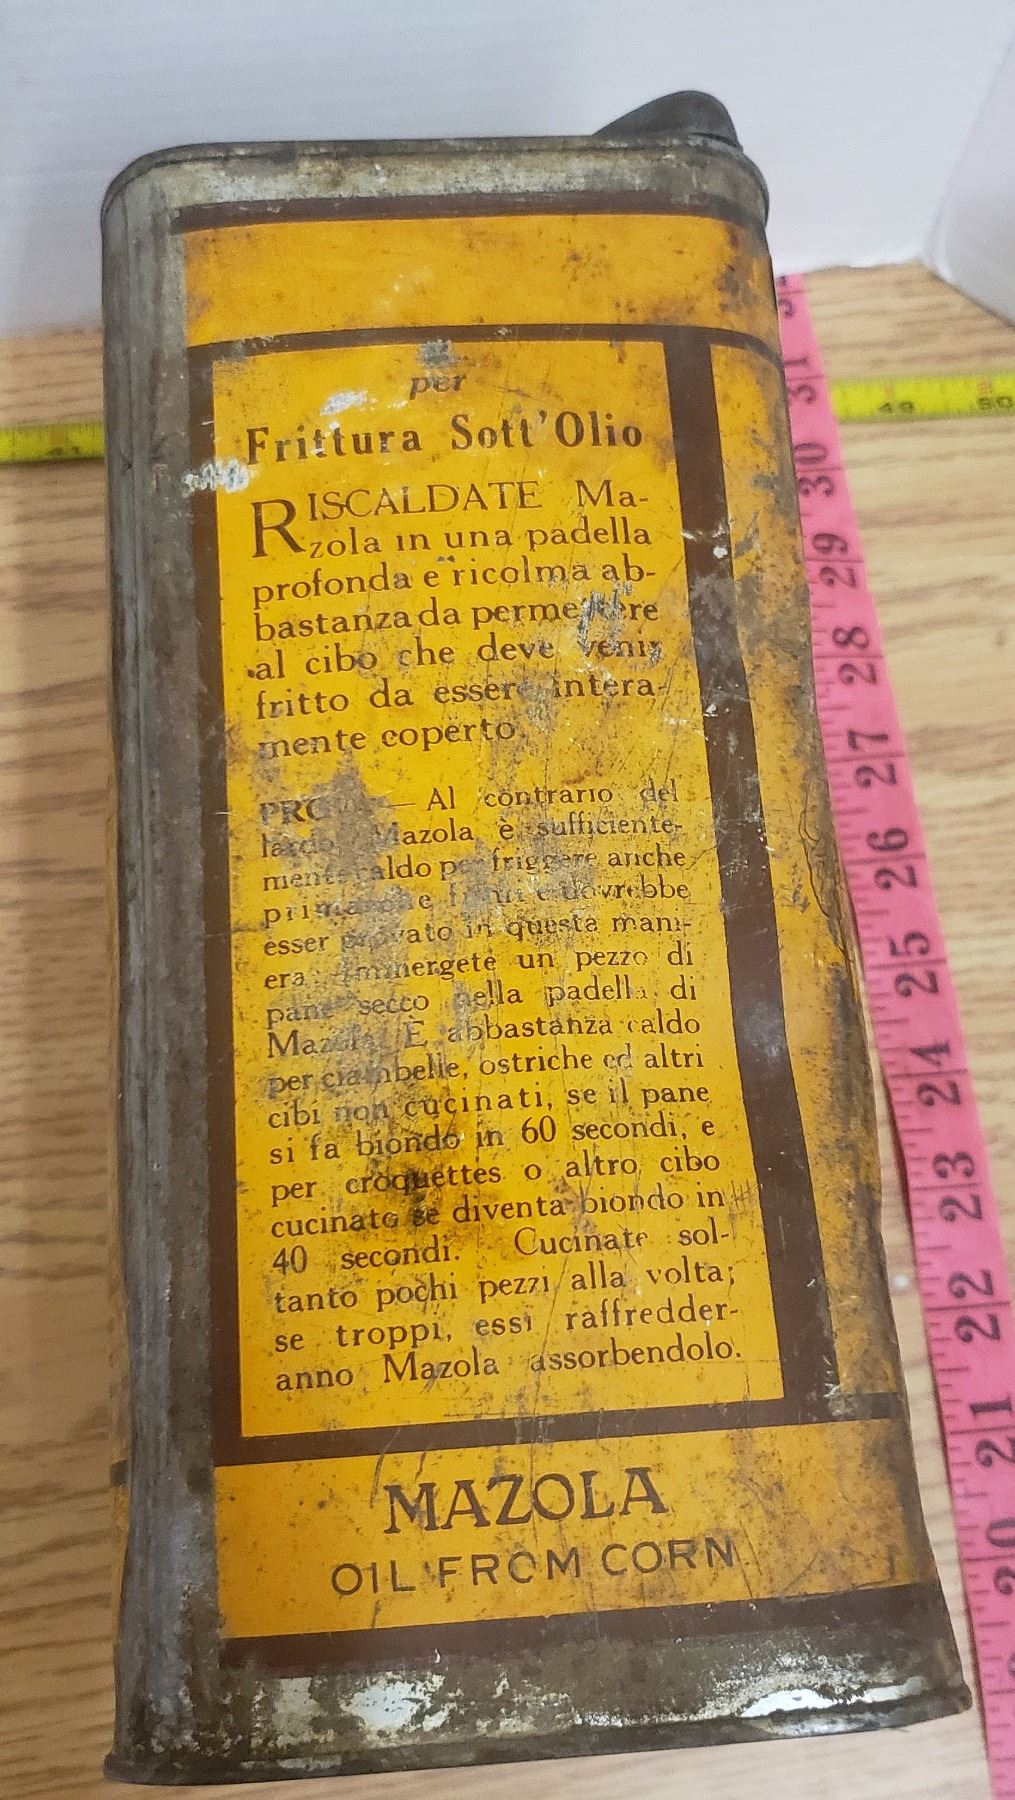 per
Frittura Sott'Olio
RISCALDATE Ma-
zola in una padella
profonda e ricolma ab-
bastanza da permettere
al cibo che deve venir
fritto da essere intera-
mente coperto.
— Al contrario del
lardo, Mazola è sufficiente-
mente caldo per friggere anche
prima che fumi e dovrebbe
esser provato in questa mani-
era. Immergete un pezzo di
pane secco nella padella di
Mazola. È abbastanza caldo
per ciambelle, ostriche ed altri
cibi non cucinati, se il pane
si fa biondo in 60 secondi, e
per croquettes o altro cibo
cucinato se diventa biondo in
40 secondi. Cucinate sol-
tanto pochi pezzi alla volta;
se troppi, essi raffredder-
anno Mazola assorbendolo.
MAZOLA
OIL FROM CORN
49
50
31
30
29
28
27
26
25
24
23
22
21
20